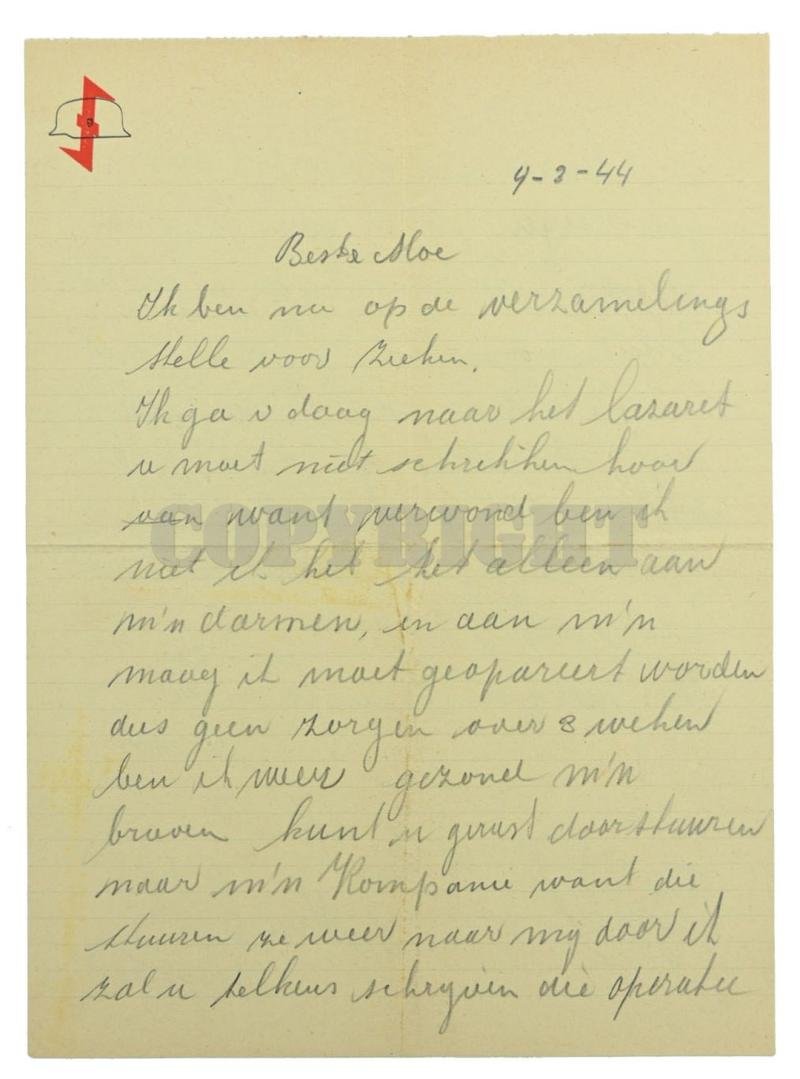 4-3-44
Beste Moe
Ik ben nu op de verzamelings
stelle voor zieken.
Ik ga v daag naar het lazaret
u moet niet schrikken hoor
van want verwond ben ik
niet ik heb het alleen aan
m'n darmen, en aan m'n
maag ik moet geopareert worden
dus geen zorgen over 3 weken
ben ik weer gezond m'n
braven kunt u gerust doorstuuren
naar m'n Kompanie want die
stuuren ze weer naar mij door ik
zal u telkens schrijven die operatie
COPYRIGHT